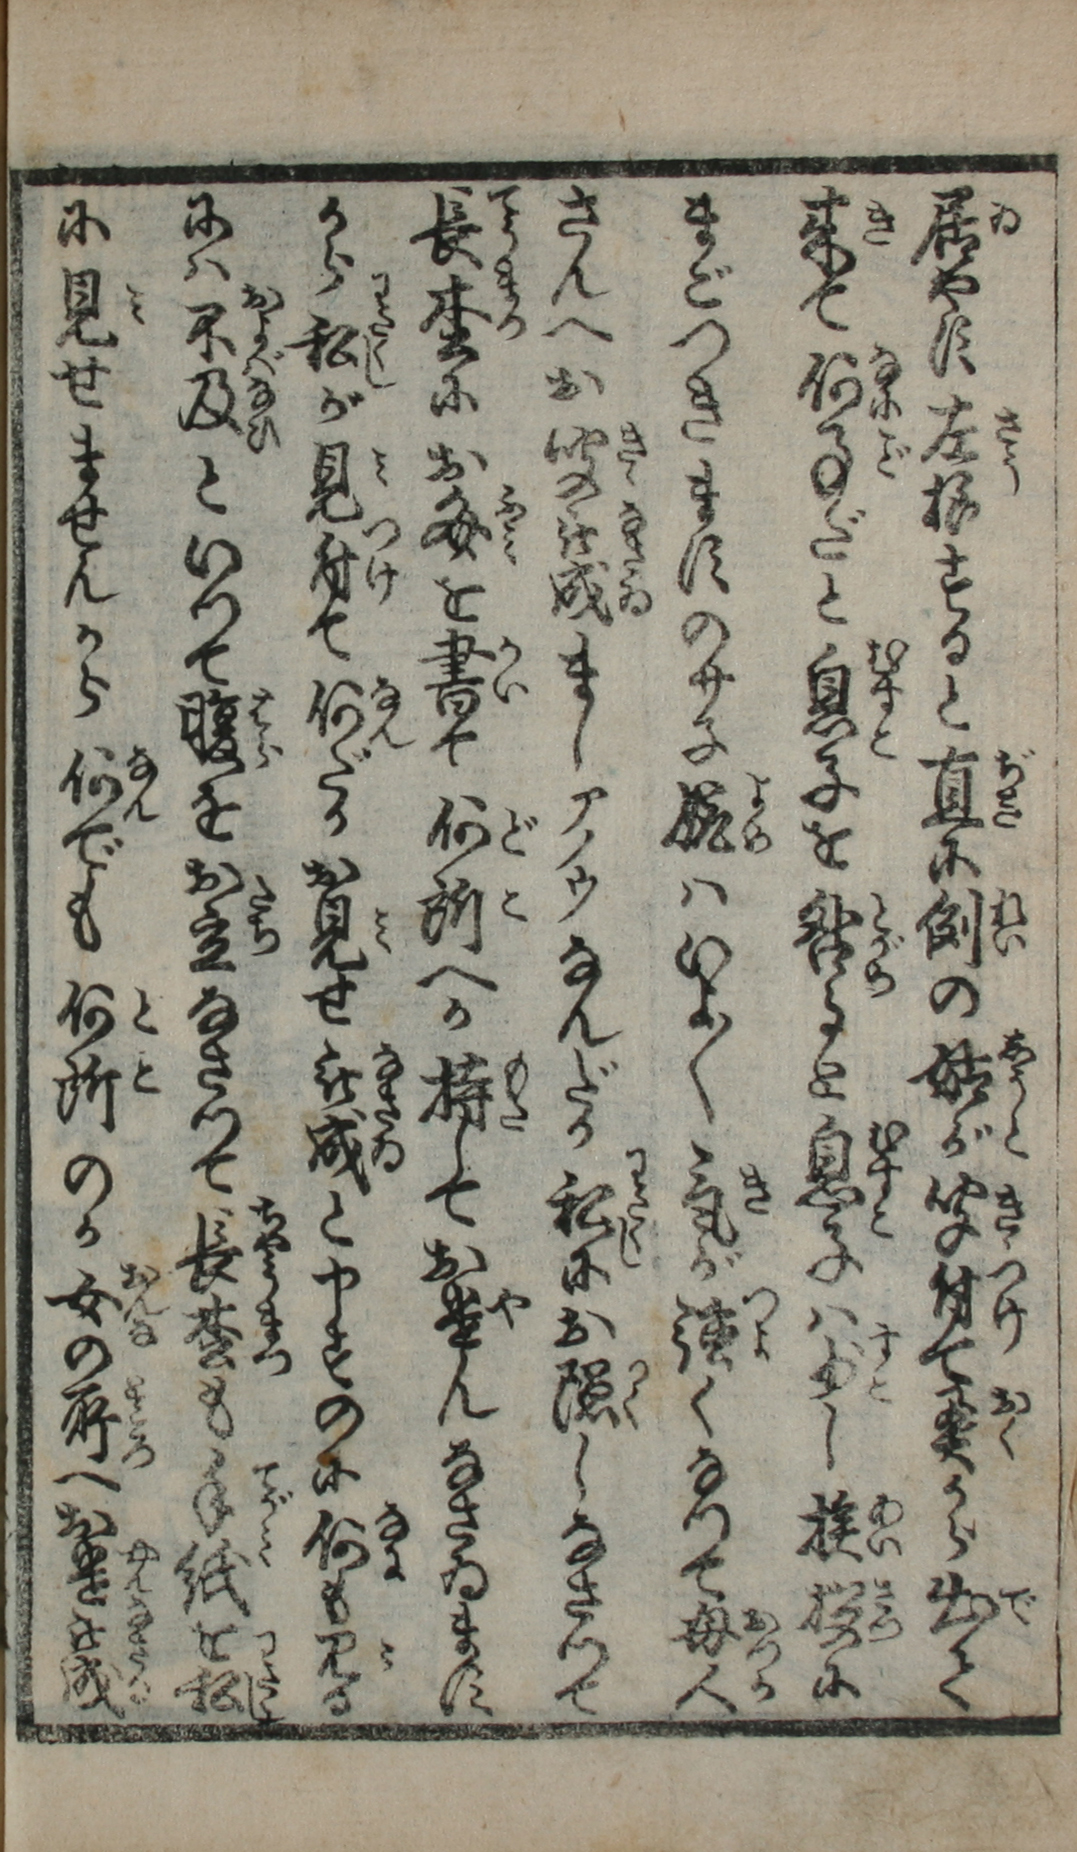 居やす左様すると直に例の姑が聞付て奥から出て
来て何事だと息子を咎ると息子ハ少し挨拶に
まごつきますのサ子娵ハいよ〱気が強くなつて母人
さんへお聞被成ましアノウなんだか私にお隠しなさつて
長松にお文を書て何所へか持してお遣んなさゐます
から私が見付て何だかお見せ被成と申すのに何も見る
にハ不及といつて腹をお立なさつて長松も手紙を私
に見せませんから何でも何所のか女の所へお遣被成